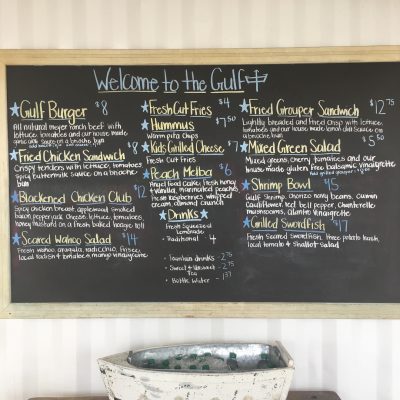 Welcome to the Gulf
Gulf Burger $8
All natural meyer ranch beef with
lettuce, tomatoes and our house made
garlic aioli. Served on a brioche bun
Fried Chicken Sandwich $8
Crispy tenders with lettuce, tomatoes
Spicy buttermilk sauce on a brioche
bun
Blackened Chicken Club $12
Spicy chicken breast, applewood smoked
bacon, pepper jack cheese, lettuce, tomatoes,
honey mustard on a fresh baked hoagie
Seared Wahoo Salad $14
Fresh wahoo, arugula, radicchio, frisee,
local radish + tomatoes, mango vinaigrette
Fresh Cut Fries $4
Hummus $7.50
Warm pita chips
Kids Grilled Cheese $7
Fresh Cut Fries
Peach Melba $6
Angel food cake, fresh honey
+ vanilla, marinated peaches
Fresh raspberries, whipped
cream, almond crunch
Drinks
Fresh Squeezed
Lemonade
- Traditional - 4
- Fountain drinks - 2.75
- Sweet + Unsweet - 2.75
Tea
- Bottle Water -
Fried Grouper Sandwich $12.75
Lightly breaded and fried crisp with lettuce,
tomatoes and our house made lemon aioli sauce on
a brioche bun
Mixed Green Salad $5.50
Mixed greens, cherry tomatoes and our
house made gluten free balsamic vinaigrette
Add grilled grouper
Shrimp Bowl $15
Gulf Shrimp, chorizo, navy beans, cumin
cauliflower, red bell pepper, chanterelle
mushrooms, cilantro vinaigrette
Grilled Swordfish $17
Fresh Seared Swordfish, three potato hash,
local tomato + shallot salad